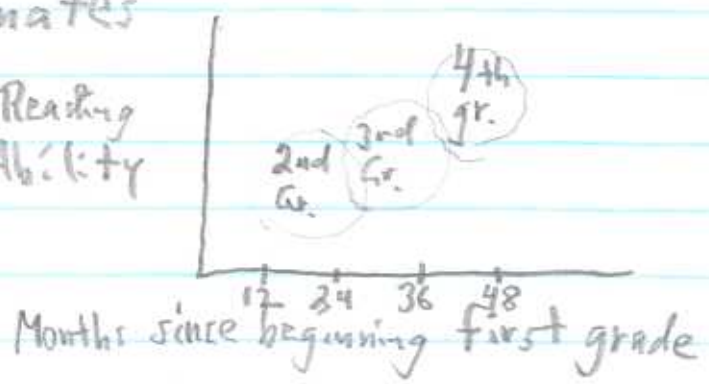 Reading
Ability
2nd
Gr.
3rd
Gr.
4th
gr.
12 24 36 48
Months since beginning first grade